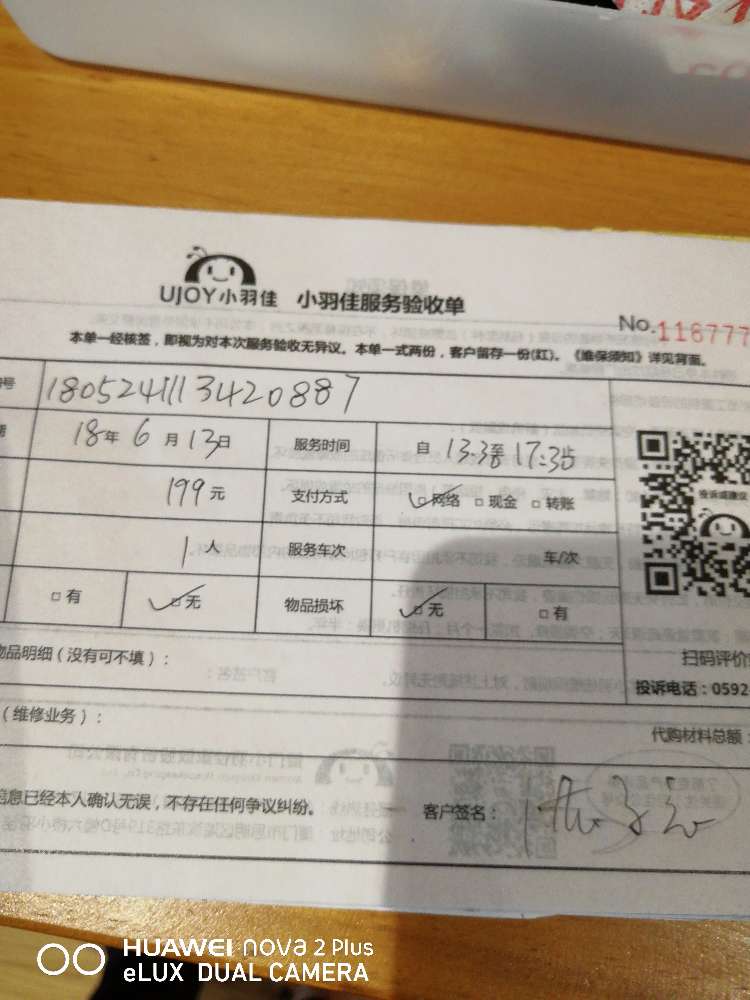 UJOY小羽佳 小羽佳服务验收单
No.118777
本单一经核签，即视为对本次服务验收无异议。本单一式两份，客户留存一份(红)。《维保须知》详见背面。
号 1805241113420887
期 18年 6月 13日 服务时间 自 13:30至 17:30止
199元 支付方式 网络 现金 转账
投诉或建议
1人 服务车次 车/次
有 无 物品损坏 无 有
扫码评价
物品明细（没有可不填）：
投诉电话：0592
（维修业务）：
代购材料总额：
信息已经本人确认无误，不存在任何争议纠纷。 客户签名：
HUAWEI nova 2 Plus
eLUX DUAL CAMERA